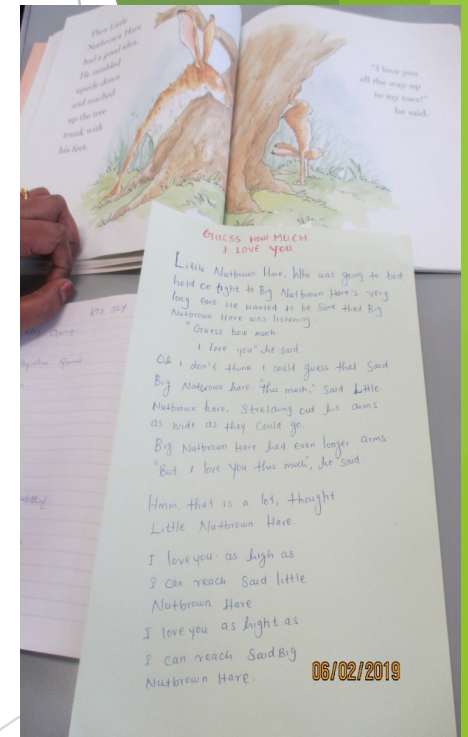 Then Little
Nutbrown Hare
had a good idea.
He tumbled
upside down
and reached
up the tree
trunk with
his feet.
"I love you
all the way up
to my toes!"
he said.
GUESS HOW MUCH
I LOVE YOU
Little Nutbrown Hare, Who was going to bed
held on tight to Big Nutbrown Hare's very
long ears. He wanted to be sure that Big
Nutbrown Hare was listening.
"Guess how much
I love you" he said.
Oh I don't think I could guess that Said
Big Nutbrown here "thus much." Said Little
Nutbrown hare, Streching out his arms
as wide as they Could go.
Big Nutbrown Hare had even longer arms.
"But I love You thus much", he said
Hmm, that is a lot, thought
Little Nutbrown Hare.
I love you - as high as
I can reach Said little
Nutbrown Hare
I love you as hight as
I can reach Said Big
Nutbrown Hare.
06/02/2019